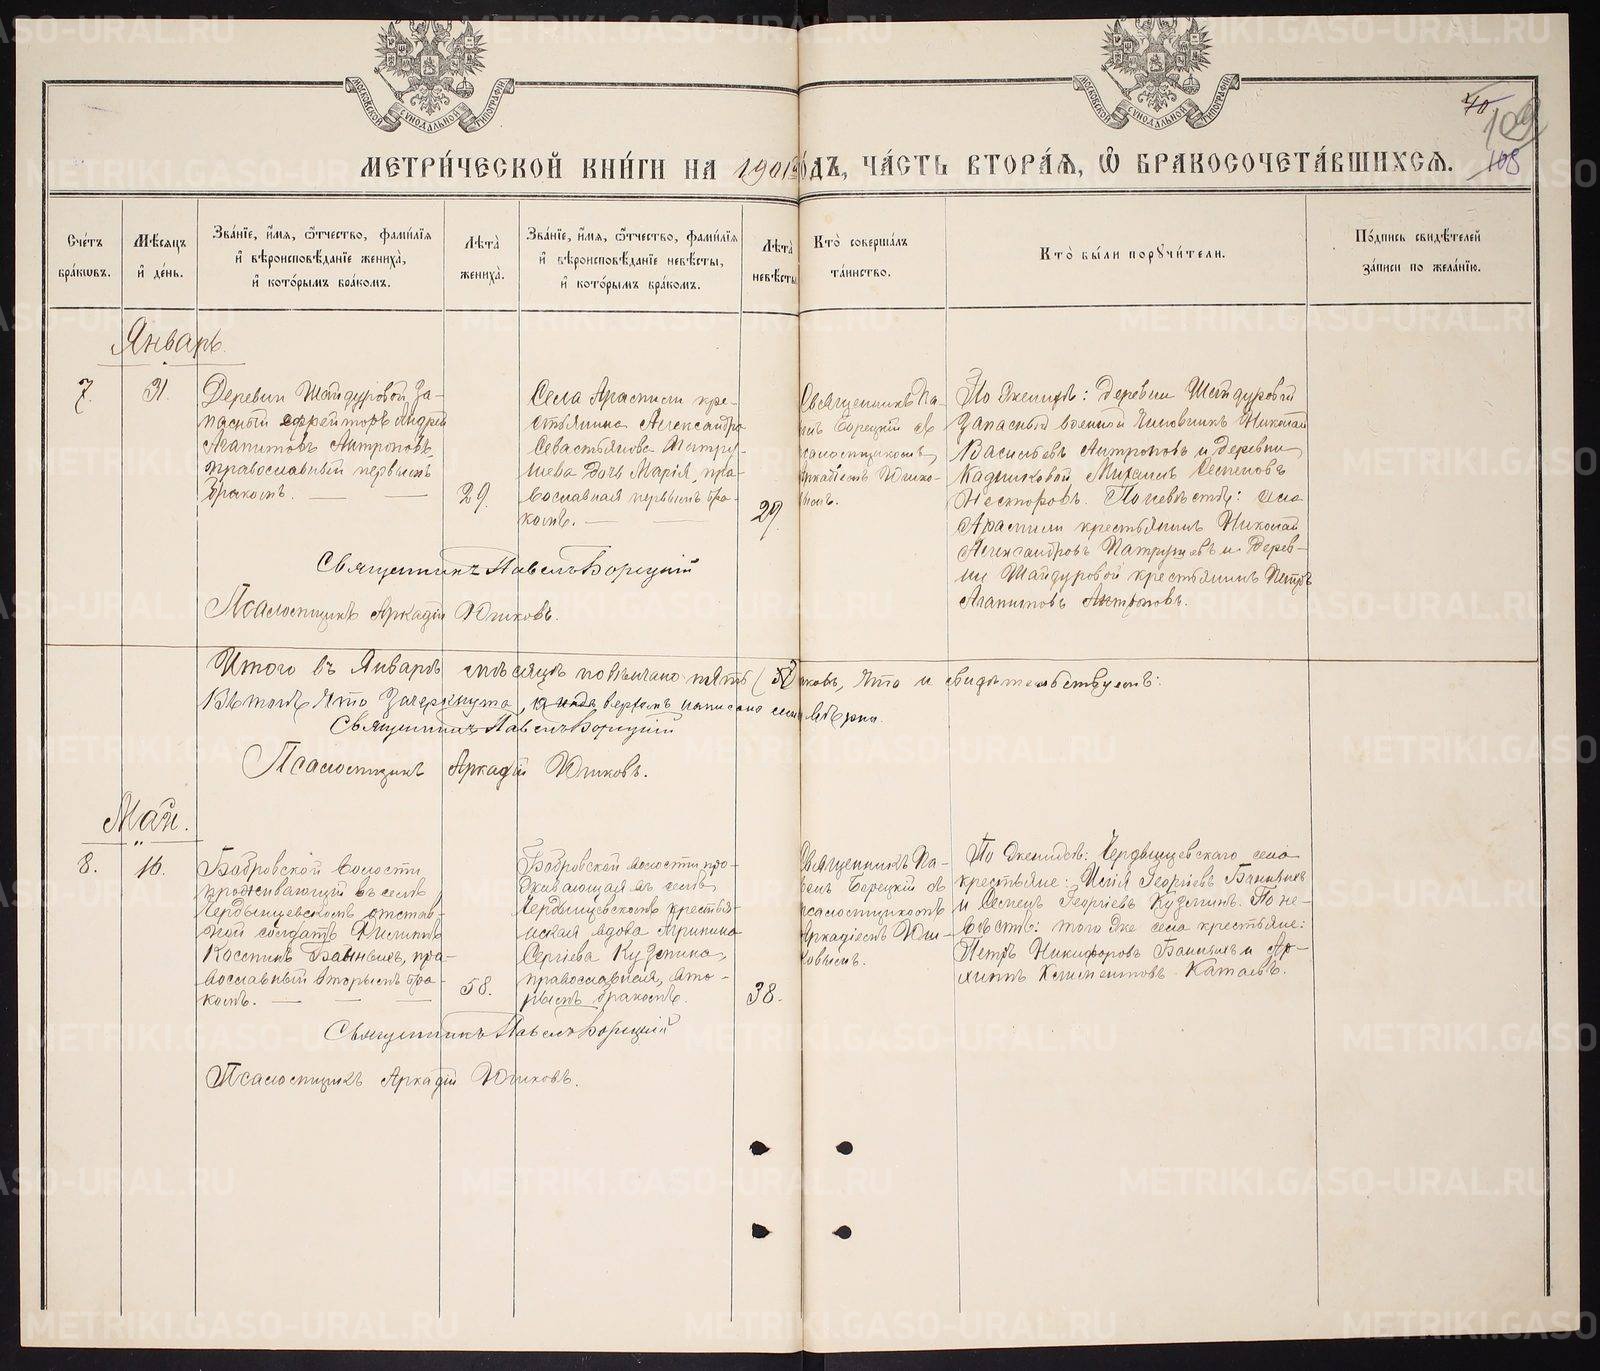 МОСКОВСКОЙ СУНОДАЛЬНОЙ ТИПОГРАФІИ
МОСКОВСКОЙ СУНОДАЛЬНОЙ ТИПОГРАФІИ
109
108
МЕТРИ́ЧЕСКОЙ КНИ́ГИ НА 1901 ГО́ДЪ, ЧА́СТЬ ВТОРА́Я, Ѡ БРАКОСОЧЕТА́ВШИХСЯ.
Сче́тъ
бра́ковъ.
Мѣсяцъ
и҆ де́нь.
Зва́нїе, и҆́мя, ѻ҆́тчество, фами́лїя
и҆ вѣроисповѣ́данїе жениха̀,
и҆ кото́рымъ бра́комъ.
Лѣта̀
жениха̀.
Зва́нїе, и҆́мя, ѻ҆́тчество, фами́лїя
и҆ вѣроисповѣ́данїе невѣ́сты,
и҆ кото́рымъ бра́комъ.
Лѣта̀
невѣ́сты
Кто̀ соверша́лъ
та́инство.
Кто̀ бы́ли порꙋчи́тели.
По́дпись свидѣ́телей
за́писи по жела́нїю.
Январь.
7.
31.
Деревни Шайдуровой за-
пасный ефрейторъ Андрей
Агапитовъ Антроповъ,
православный первымъ
бракомъ.
29.
Села Арамили кре-
стьянина Александра
Севастьянова Патру-
шева дочь Марія, пра-
вославная первымъ бра-
комъ.
29.
Священникъ Па-
велъ Борецкій съ
псаломщикомъ
Аркадіемъ Юшко-
вымъ.
По женихѣ: деревни Шайдуровой
запасный военный чиновникъ Николай
Васильевъ Антроповъ и деревни
Кадниковой Михаилъ Семеновъ
Несторовъ. По невѣстѣ: села
Арамили крестьянинъ Николай
Александровъ Патрушевъ и дерев-
ни Шайдуровой крестьянинъ Петръ
Агапитовъ Антроповъ.
Священникъ Павелъ Борецкій
Псаломщикъ Аркадій Юшковъ.
Итого въ Январѣ мѣсяцѣ повѣнчано пять ( ковъ, что и свидѣтельствуемъ:
Въ томъ что зачеркнуто, а верхомъ написано семь вѣрно.
Священникъ Павелъ Борецкій
Псаломщикъ Аркадій Юшковъ.
Май.
8.
16.
Бобровской волости
проживающій въ селѣ
Чердынцевскомъ отстав-
ной солдатъ Филиппъ
Косминъ Банныхъ, пра-
вославный вторымъ бра-
комъ.
58.
Бобровской волости про-
живающая въ селѣ
Чердынцевскомъ крестья-
нская вдова Агрипина
Сергіева Кузмина,
православная, вто-
рымъ бракомъ.
38.
Священникъ Па-
велъ Борецкій съ
псаломщикомъ
Аркадіемъ Юш-
ковымъ.
По женихѣ: Чердынцевскаго села
крестьяне: Илія Георгіевъ Банныхъ
и Семенъ Георгіевъ Кузминъ. По не-
вѣстѣ: того же села крестьяне:
Петръ Никифоровъ Банныхъ и Ар-
хиппъ Климентовъ Катаевъ.
Священникъ Павелъ Борецкій
Псаломщикъ Аркадій Юшковъ.
METRIKI.GASO-URAL.RU